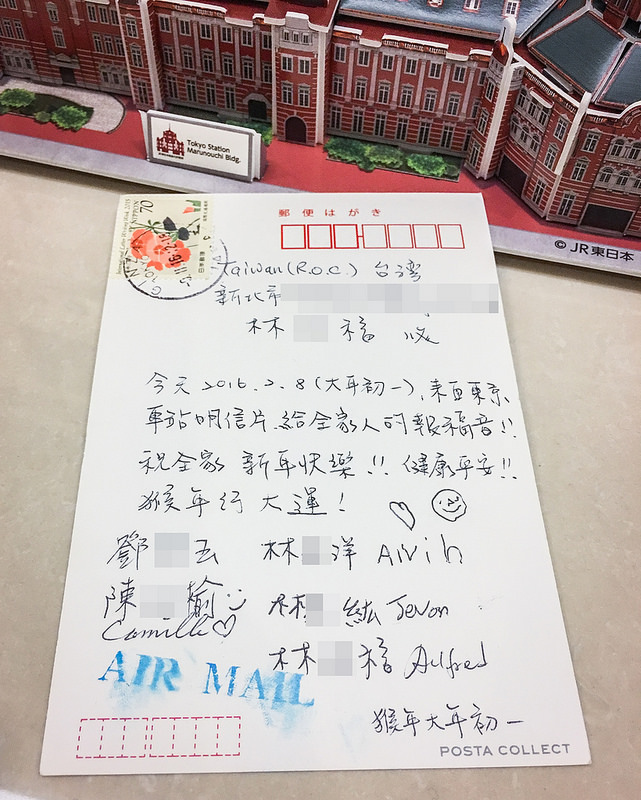 Tokyo Station
Marunouchi Bldg.
© JR東日本
International Letter Writing Week 2015
NIPPON
70
日本郵便
郵便はがき
Taiwan (R.O.C.) 台湾
新北市
林 福 收
今天2016.2.8(大年初一),來自東京
車站明信片,給全家人的報福音!!
祝全家 新年快樂!! 健康平安!!
猴年行大運!
鄧 玉 林 洋 Alvin
陳 榆 林 紘 Jevon
Camille
林 福 Alfred
AIR MAIL
猴年大年初一
POSTA COLLECT